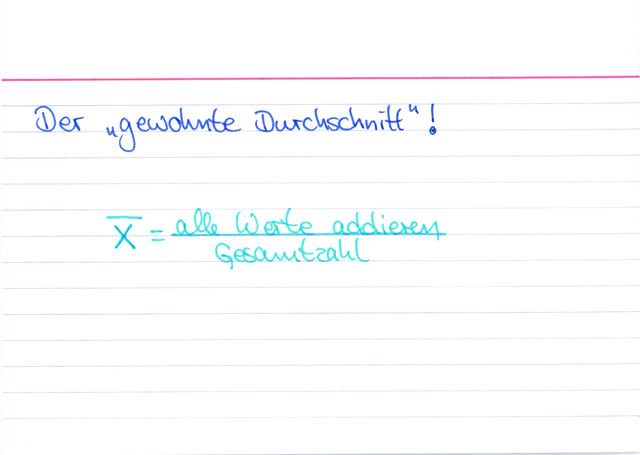 Der „gewohnte Durchschnitt“!
X̅ = alle Werte addieren
Gesamtzahl